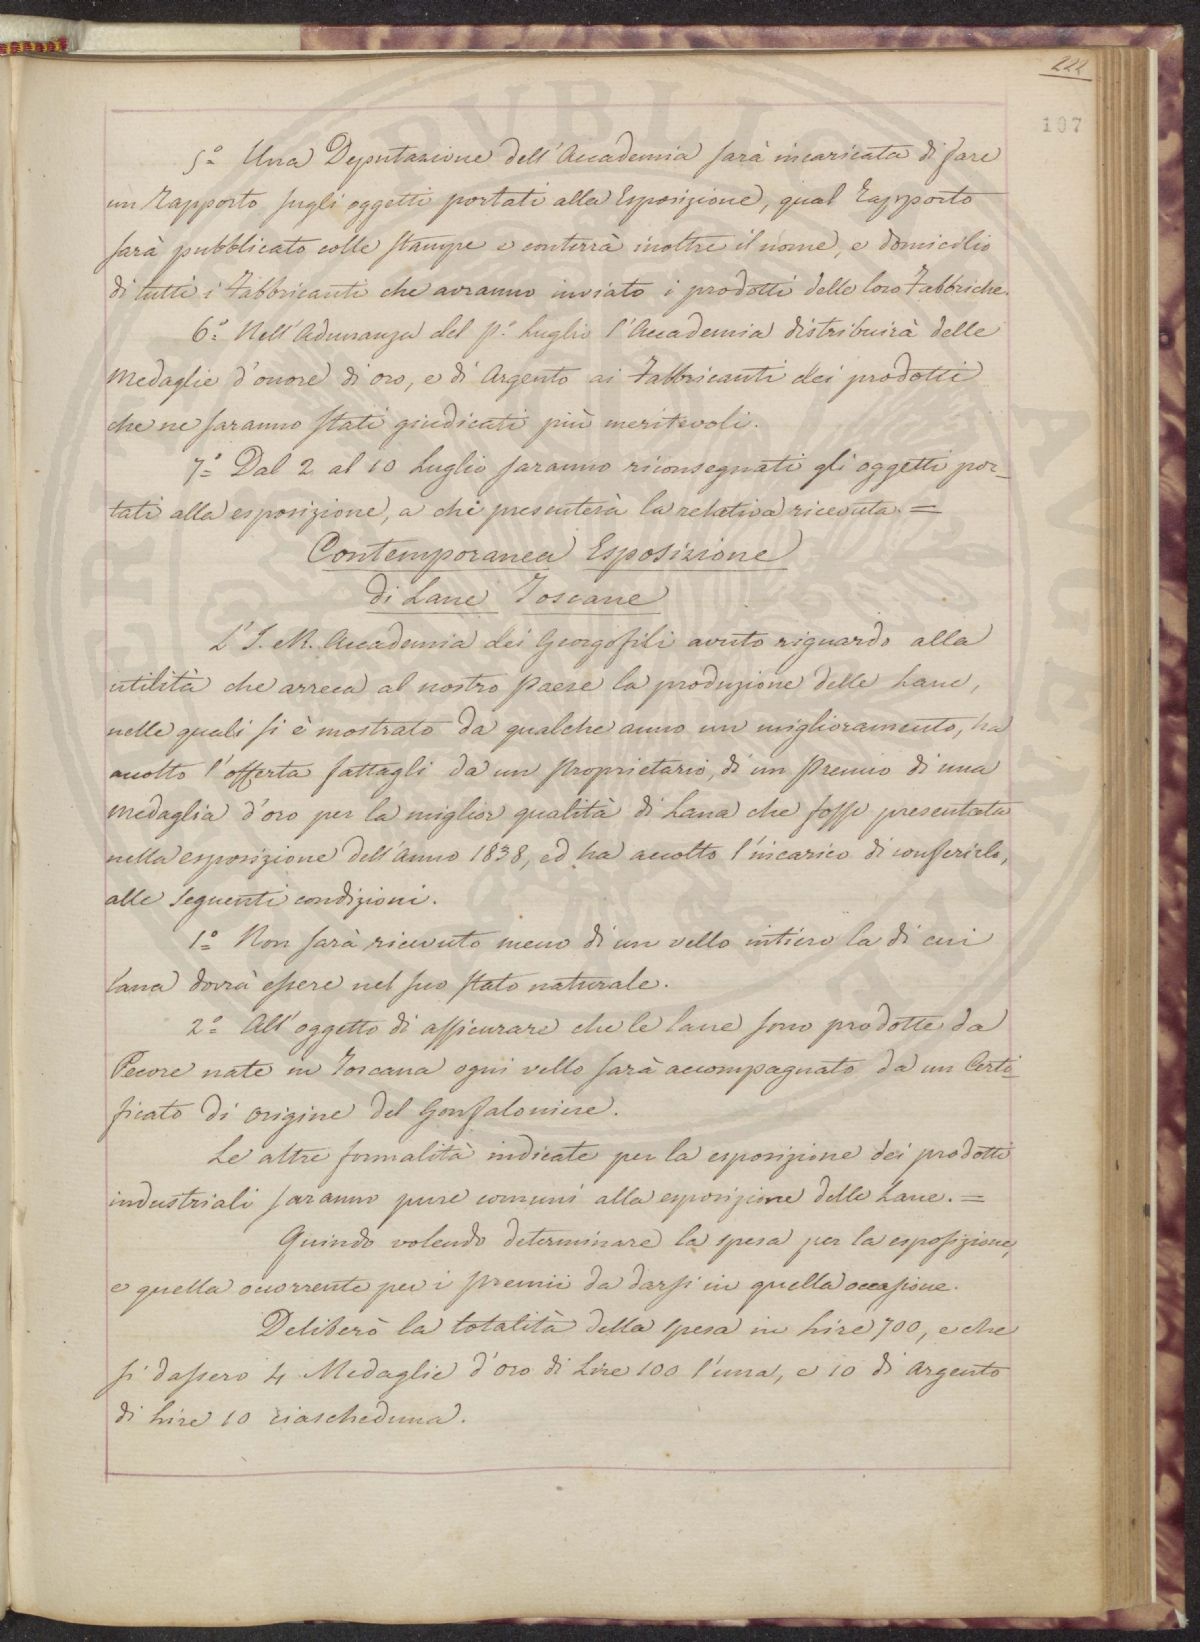 222
107
5º Una Deputazione dell'Accademia sarà incaricata di fare
un Rapporto sugli oggetti portati alla Esposizione, qual Rapporto
sarà pubblicato colle stampe e conterrà inoltre il nome, e domicilio
di tutti i Fabbricanti che avranno inviato i prodotti delle loro Fabbriche.
6º Nell'Adunanza del pº Luglio l'Accademia distribuirà delle
Medaglie d'onore di oro, e di Argento ai Fabbricanti dei prodotti
che ne saranno stati giudicati più meritevoli.
7º Dal 2 al 10 Luglio saranno riconsegnati gli oggetti por=
tati alla esposizione, a chi presenterà la relativa ricevuta. =
Contemporanea Esposizione
di Lane Toscane
L'I. e R. Accademia dei Georgofili avuto riguardo alla
utilità che arreca al nostro paese la produzione delle Lane,
nelle quali si è mostrato da qualche anno un miglioramento, ha
accolto l'offerta fattagli da un Proprietario, di un Premio di una
Medaglia d'oro per la miglior qualità di Lana che fosse presentata
nella esposizione dell'Anno 1838, ed ha accolto l'incarico di conferirlo,
alle seguenti condizioni.
1º Non sarà ricevuto meno di un vello intiero la di cui
lana dovrà essere nel suo stato naturale.
2º All'oggetto di assicurare che le lane sono prodotte da
Pecore nate in Toscana ogni vello sarà accompagnato da un Certi=
ficato di origine del Gonfaloniere.
Le altre formalità indicate per la esposizione dei prodotti
industriali saranno pure comuni alla esposizione delle Lane. =
Quindo volendo determinare la spesa per la esposizione,
e quella occorrente per i premii da darsi in quella occasione.
Deliberò la totalità della spesa in Lire 700, e che
si dassero 4 Medaglie d'oro di Lire 100 l'una, e 10 di Argento
di Lire 10 ciascheduna.